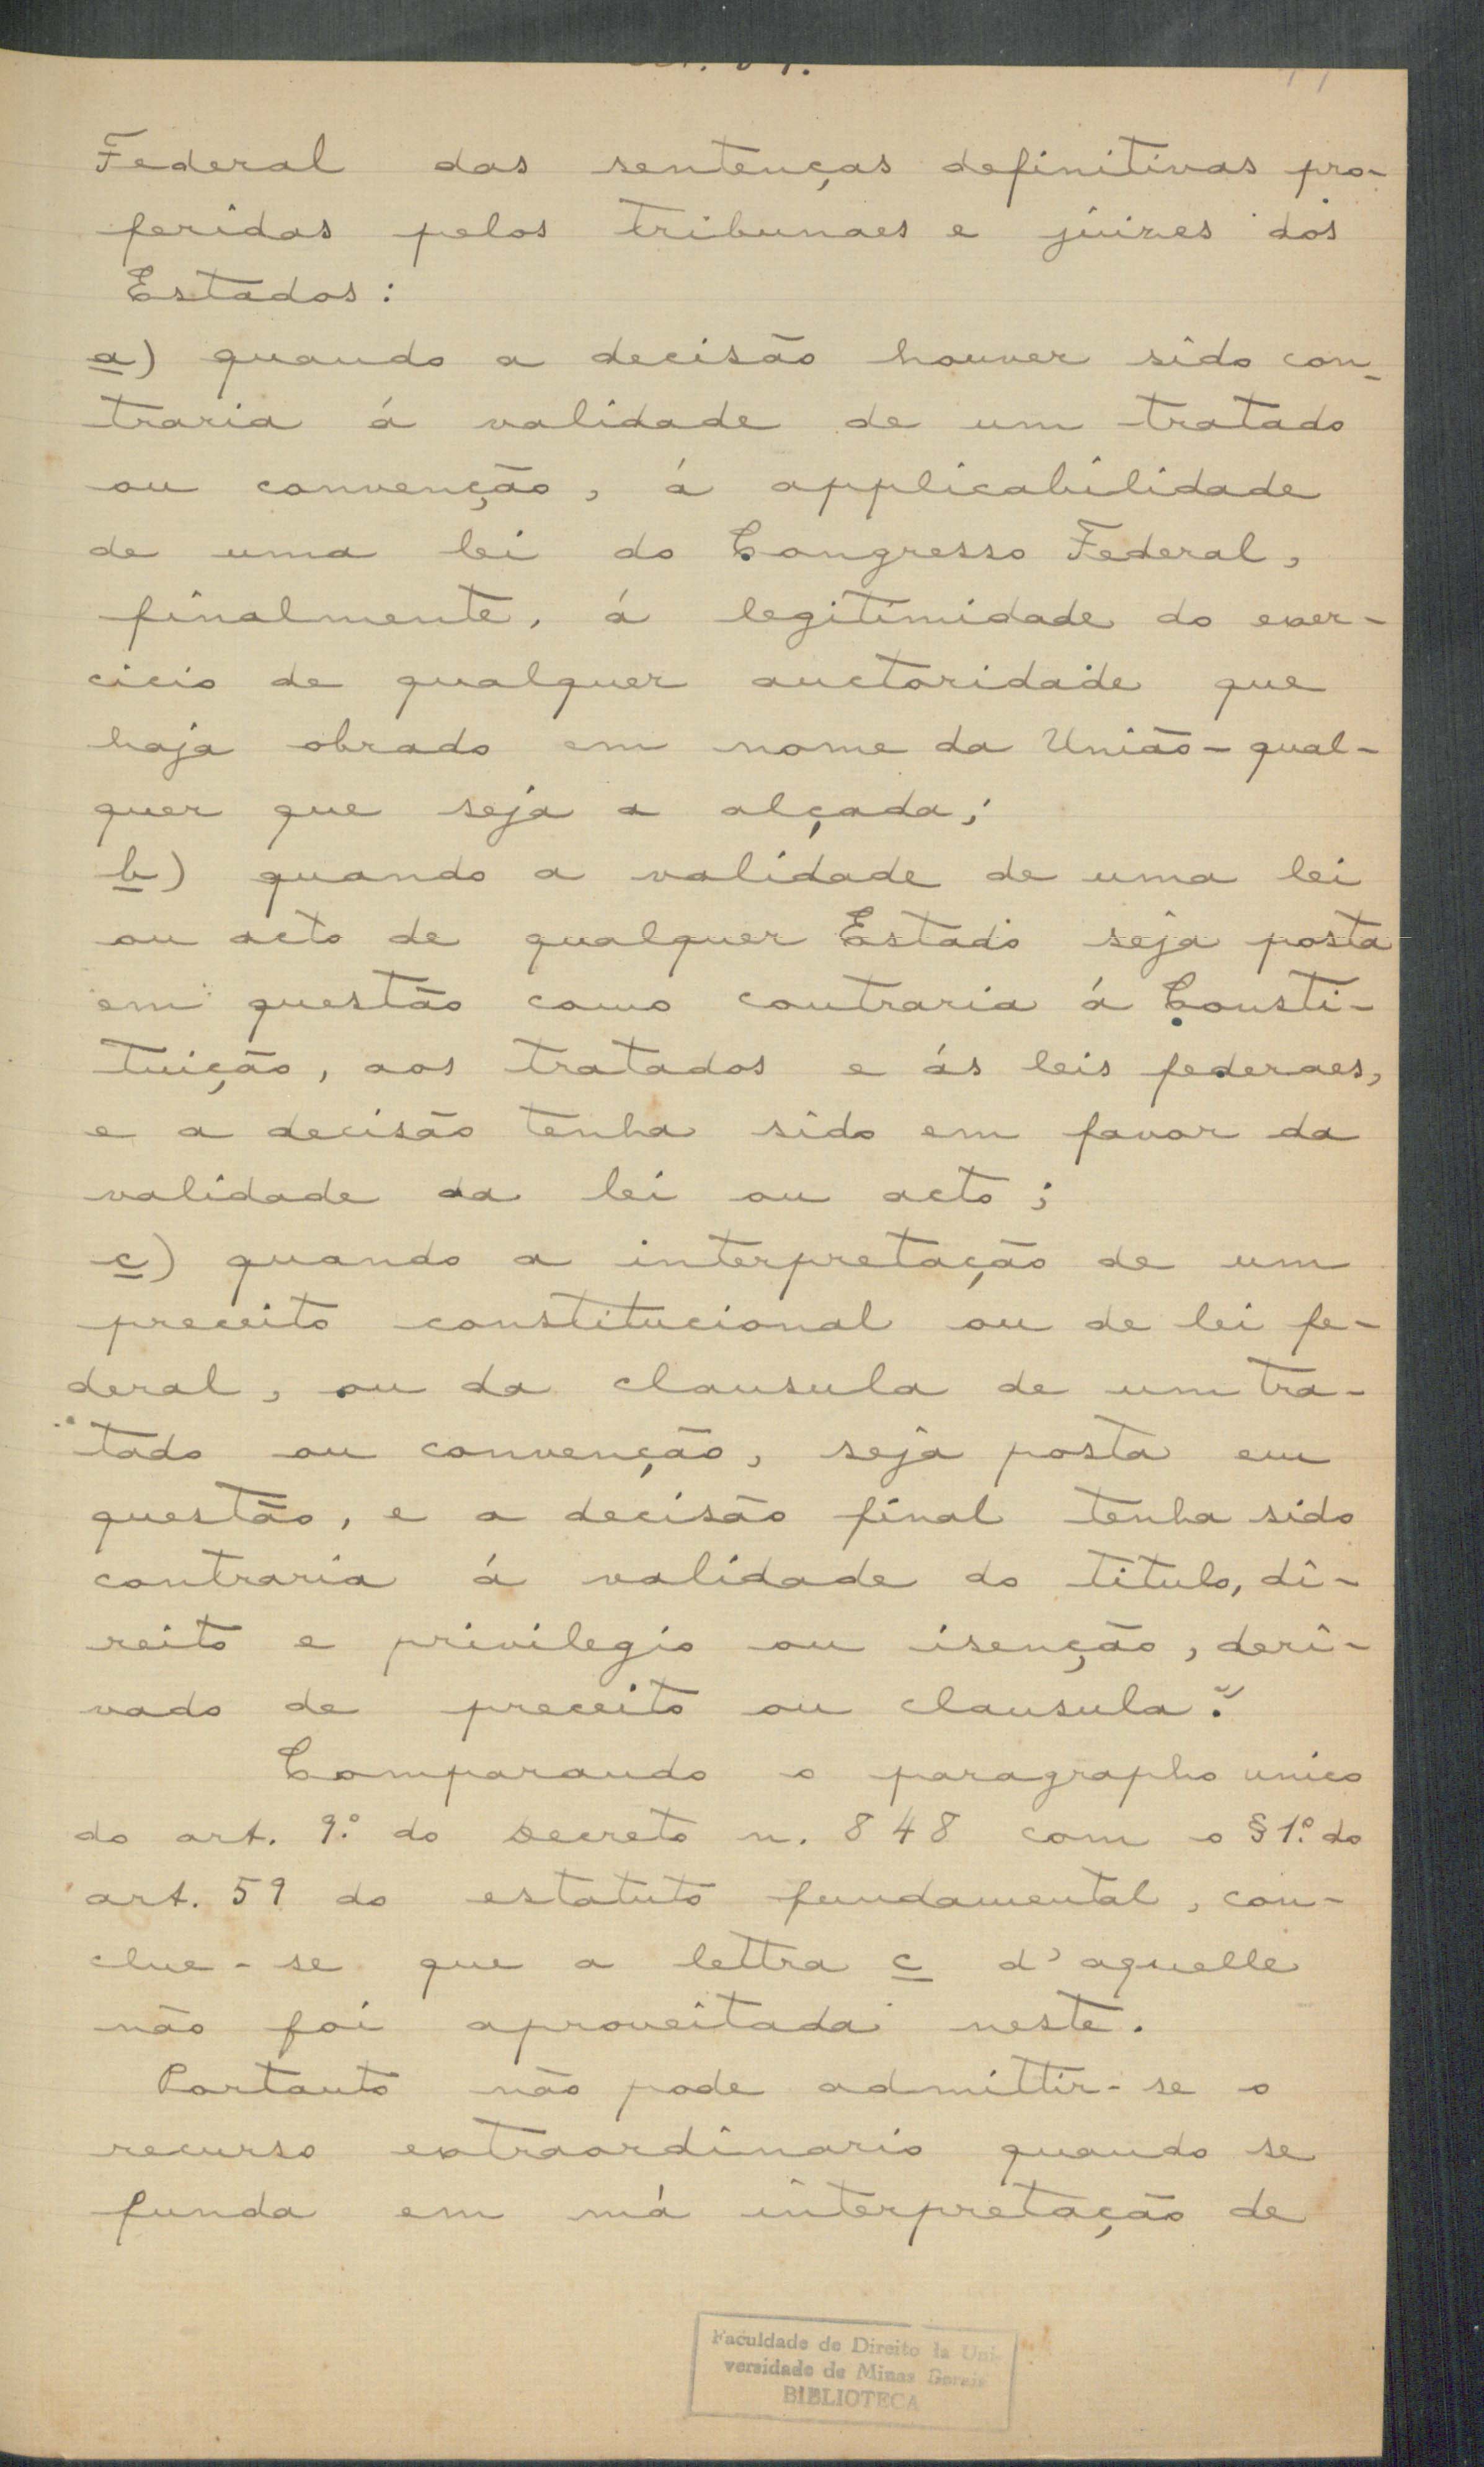 Federal das sentenças definitivas pro-
feridas pelos tribunaes e juizes dos
Estados:
a) quando a decisão houver sido con-
traria á validade de um tratado
ou convenção, á applicabilidade
de uma lei do Congresso Federal,
finalmente, á legitimidade do exer-
cicio de qualquer auctoridade que
haja obrado em nome da União - qual-
quer que seja a alçada;
b) quando a validade de uma lei
ou acto de qualquer Estado seja posta
em questão como contraria á Consti-
tuição, aos tratados e ás leis federaes,
e a decisão tenha sido em favor da
validade da lei ou acto;
c) quando a interpretação de um
preceito constitucional ou de lei fe-
deral, ou da clausula de um tra-
tado ou convenção, seja posta em
questão, e a decisão final tenha sido
contraria á validade do titulo, di-
reito e privilegio ou isenção, deri-
vado de preceito ou clausula."
Comparando o paragrapho unico
do art. 9.º do Decreto n. 848 com o § 1.º do
art. 59 do estatuto fundamental, con-
clue-se que a lettra c d'aquelle
não foi aproveitada neste.
Portanto não pode admittir-se o
recurso extraordinario quando se
funda em má interpretação de
Faculdade de Direito da Uni-
versidade de Minas Gerais
BIBLIOTECA